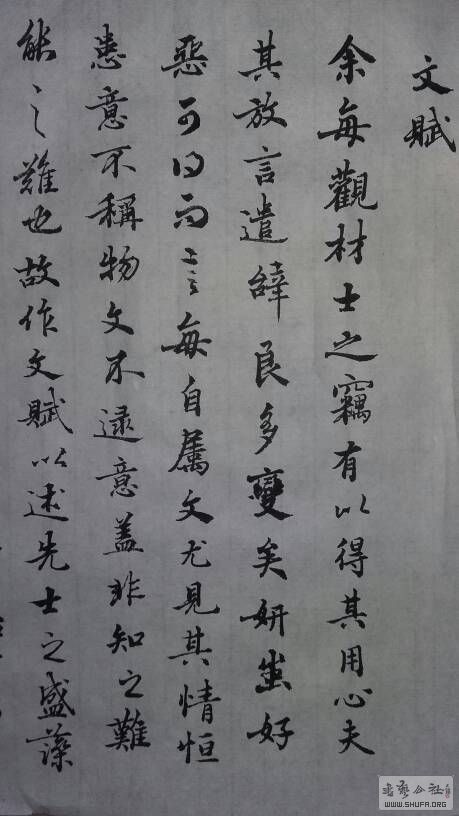 文賦
余每觀材士之竊有以得其用心夫
其放言遣辭良多變矣妍蚩好
惡可得而言每自屬文尤見其情恒
患意不稱物文不逮意蓋非知之難
能之難也故作文賦以述先士之盛藻
WWW.SHUFA.ORG